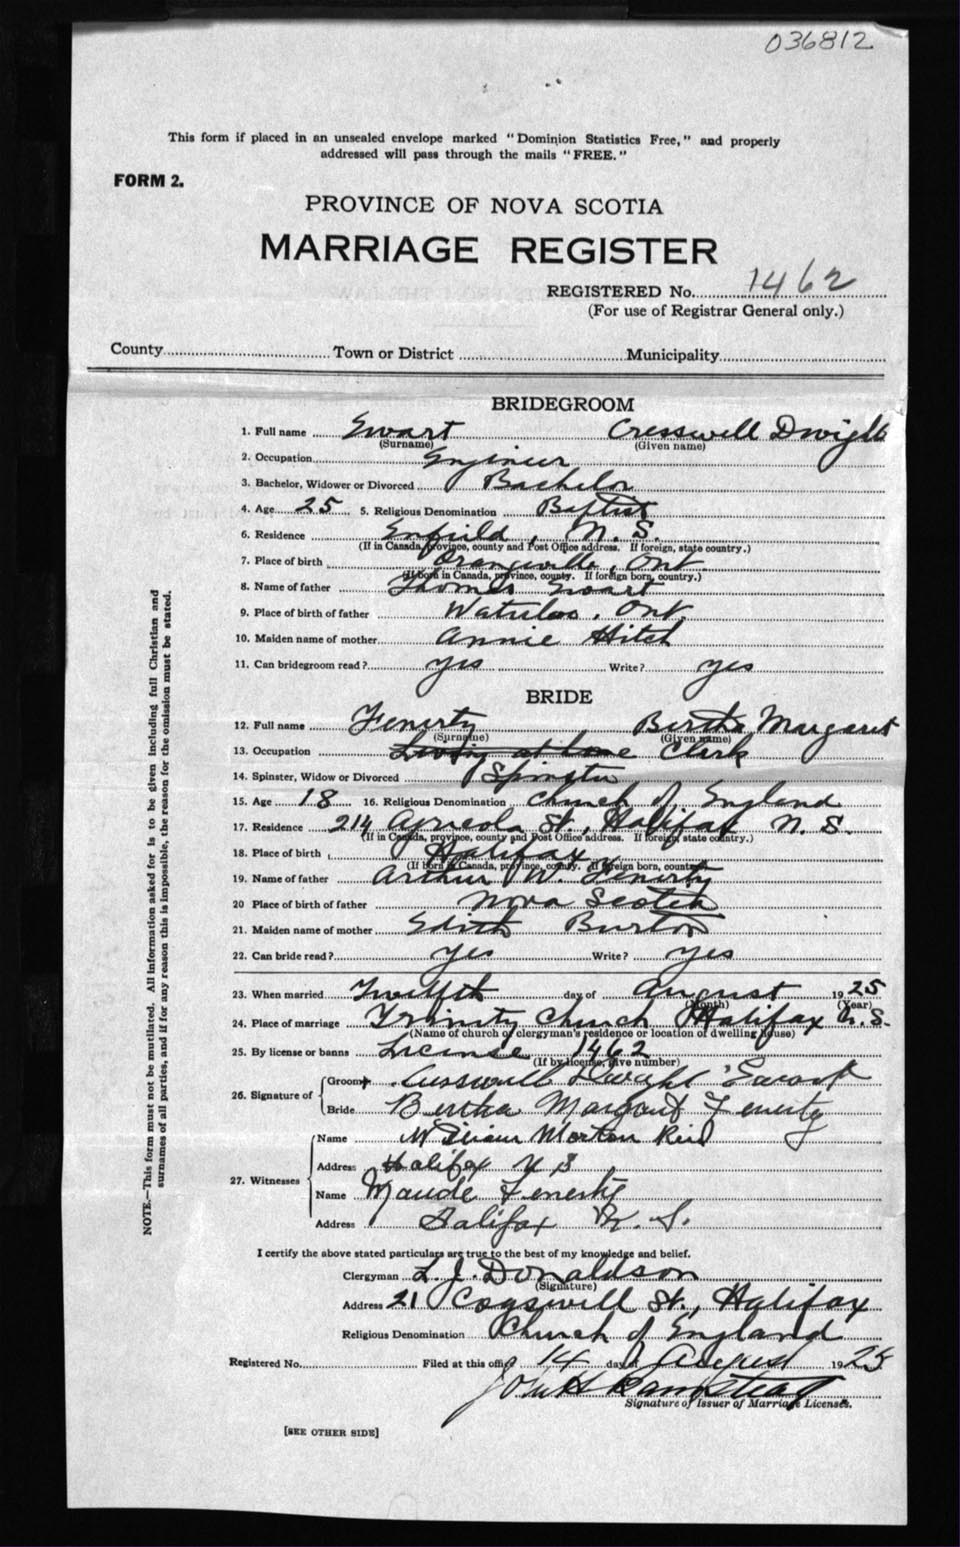 036812
This form if placed in an unsealed envelope marked "Dominion Statistics Free," and properly
addressed will pass through the mails "FREE."
FORM 2.
PROVINCE OF NOVA SCOTIA
MARRIAGE REGISTER
REGISTERED No. 1462
(For use of Registrar General only.)
County Town or District Municipality
BRIDEGROOM
1. Full name Ewart Cresswell Dwight
(Surname) (Given name)
2. Occupation Engineer
3. Bachelor, Widower or Divorced Bachelor
4. Age 25 5. Religious Denomination Baptist
6. Residence Enfield, N. S.
(If in Canada, province, county and Post Office address. If foreign, state country.)
7. Place of birth Orangeville, Ont
(If born in Canada, province, county. If foreign born, country.)
8. Name of father Thomas Ewart
9. Place of birth of father Waterloo, Ont
10. Maiden name of mother Annie Hitch
11. Can bridegroom read? yes Write? yes
BRIDE
12. Full name Fenerty Bertha Margaret
(Surname) (Given name)
13. Occupation Living at home Clerk
14. Spinster, Widow or Divorced Spinster
15. Age 18 16. Religious Denomination Church of England
17. Residence 214 Agricola St., Halifax N. S.
(If in Canada, province, county and Post Office address. If foreign, state country.)
18. Place of birth Halifax
(If born in Canada, province, county. If foreign born, country.)
19. Name of father Arthur W. Fenerty
20 Place of birth of father Nova Scotia
21. Maiden name of mother Edith Burton
22. Can bride read? yes Write? yes
23. When married Twelfth day of August 1925
(Month) (Year)
24. Place of marriage Trinity Church Halifax N. S.
(Name of church or clergyman's residence or location of dwelling house)
25. By license or banns License 1462
(If by license, give number)
26. Signature of Groom Cresswell Dwight Ewart
Bride Bertha Margaret Fenerty
27. Witnesses
Name William Morton Reid
Address Halifax N S
Name Maude Fenerty
Address Halifax N. S.
I certify the above stated particulars are true to the best of my knowledge and belief.
Clergyman L. J. Donaldson
(Signature)
Address 21 Cogswell St., Halifax
Religious Denomination Church of England
Registered No. Filed at this office 14 day of August 1925
John H Barnstead
Signature of Issuer of Marriage Licenses.
[SEE OTHER SIDE]
NOTE.—This form must not be mutilated. All information asked for is to be given including full Christian and
surnames of all parties, and if for any reason this is impossible, the reason for the omission must be stated.